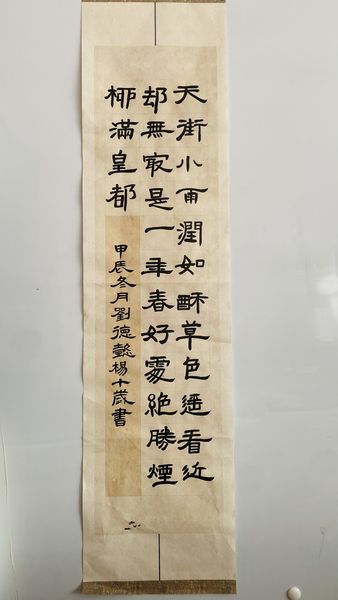 天街小雨潤如酥草色遥看近
却無最是一年春好處絶勝煙
柳滿皇都
甲辰冬月劉德懿楊十歲書